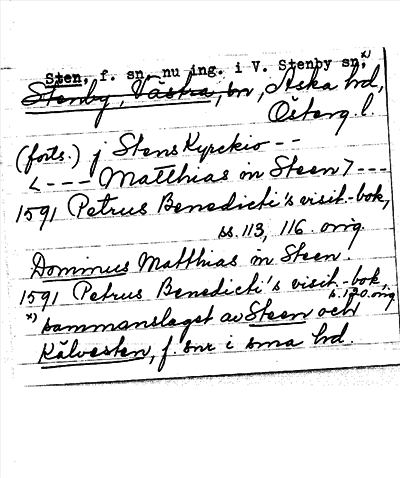 Sten, f. sn, nu ing. i V. Stenby sn,x)
Stenby, Västra, sn, Aska hd,
Österg. l.
(forts.) j Stens Kyrckio --
<--- Matthias in Steen> ---
1591 Petrus Benedicti's visit.-bok,
ss. 113, 116. orig.
Dominus Matthias in Steen.
1591 Petrus Benedicti's visit.-bok,
s. 120. orig
x) sammanslaget av Steen och
Kälvesten, f. snr i sma hd.